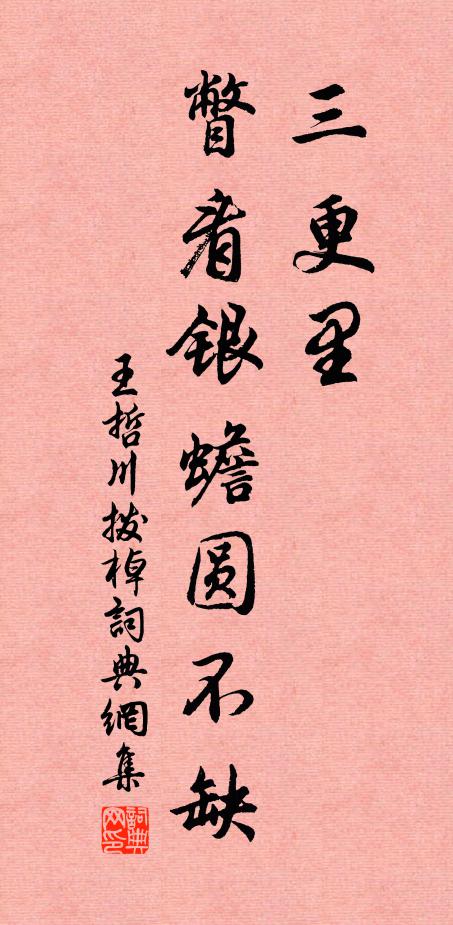 三更里
瞥看銀蟾圆不缺
王哲川拨棹詞典網集
詞典
网印